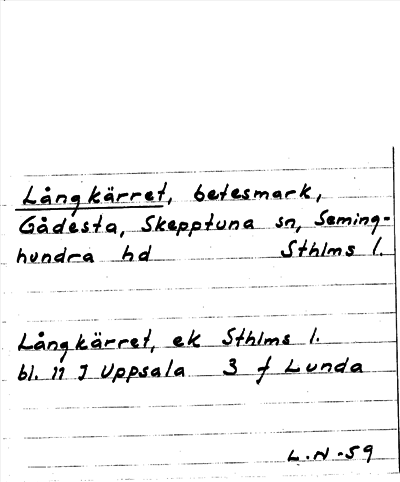 Långkärret, betesmark,
Gådesta, Skepptuna sn, Seming-
hundra hd Sthlms l.
Långkärret, ek Sthlms l.
bl. 11 I Uppsala 3 f Lunda
L.N-59